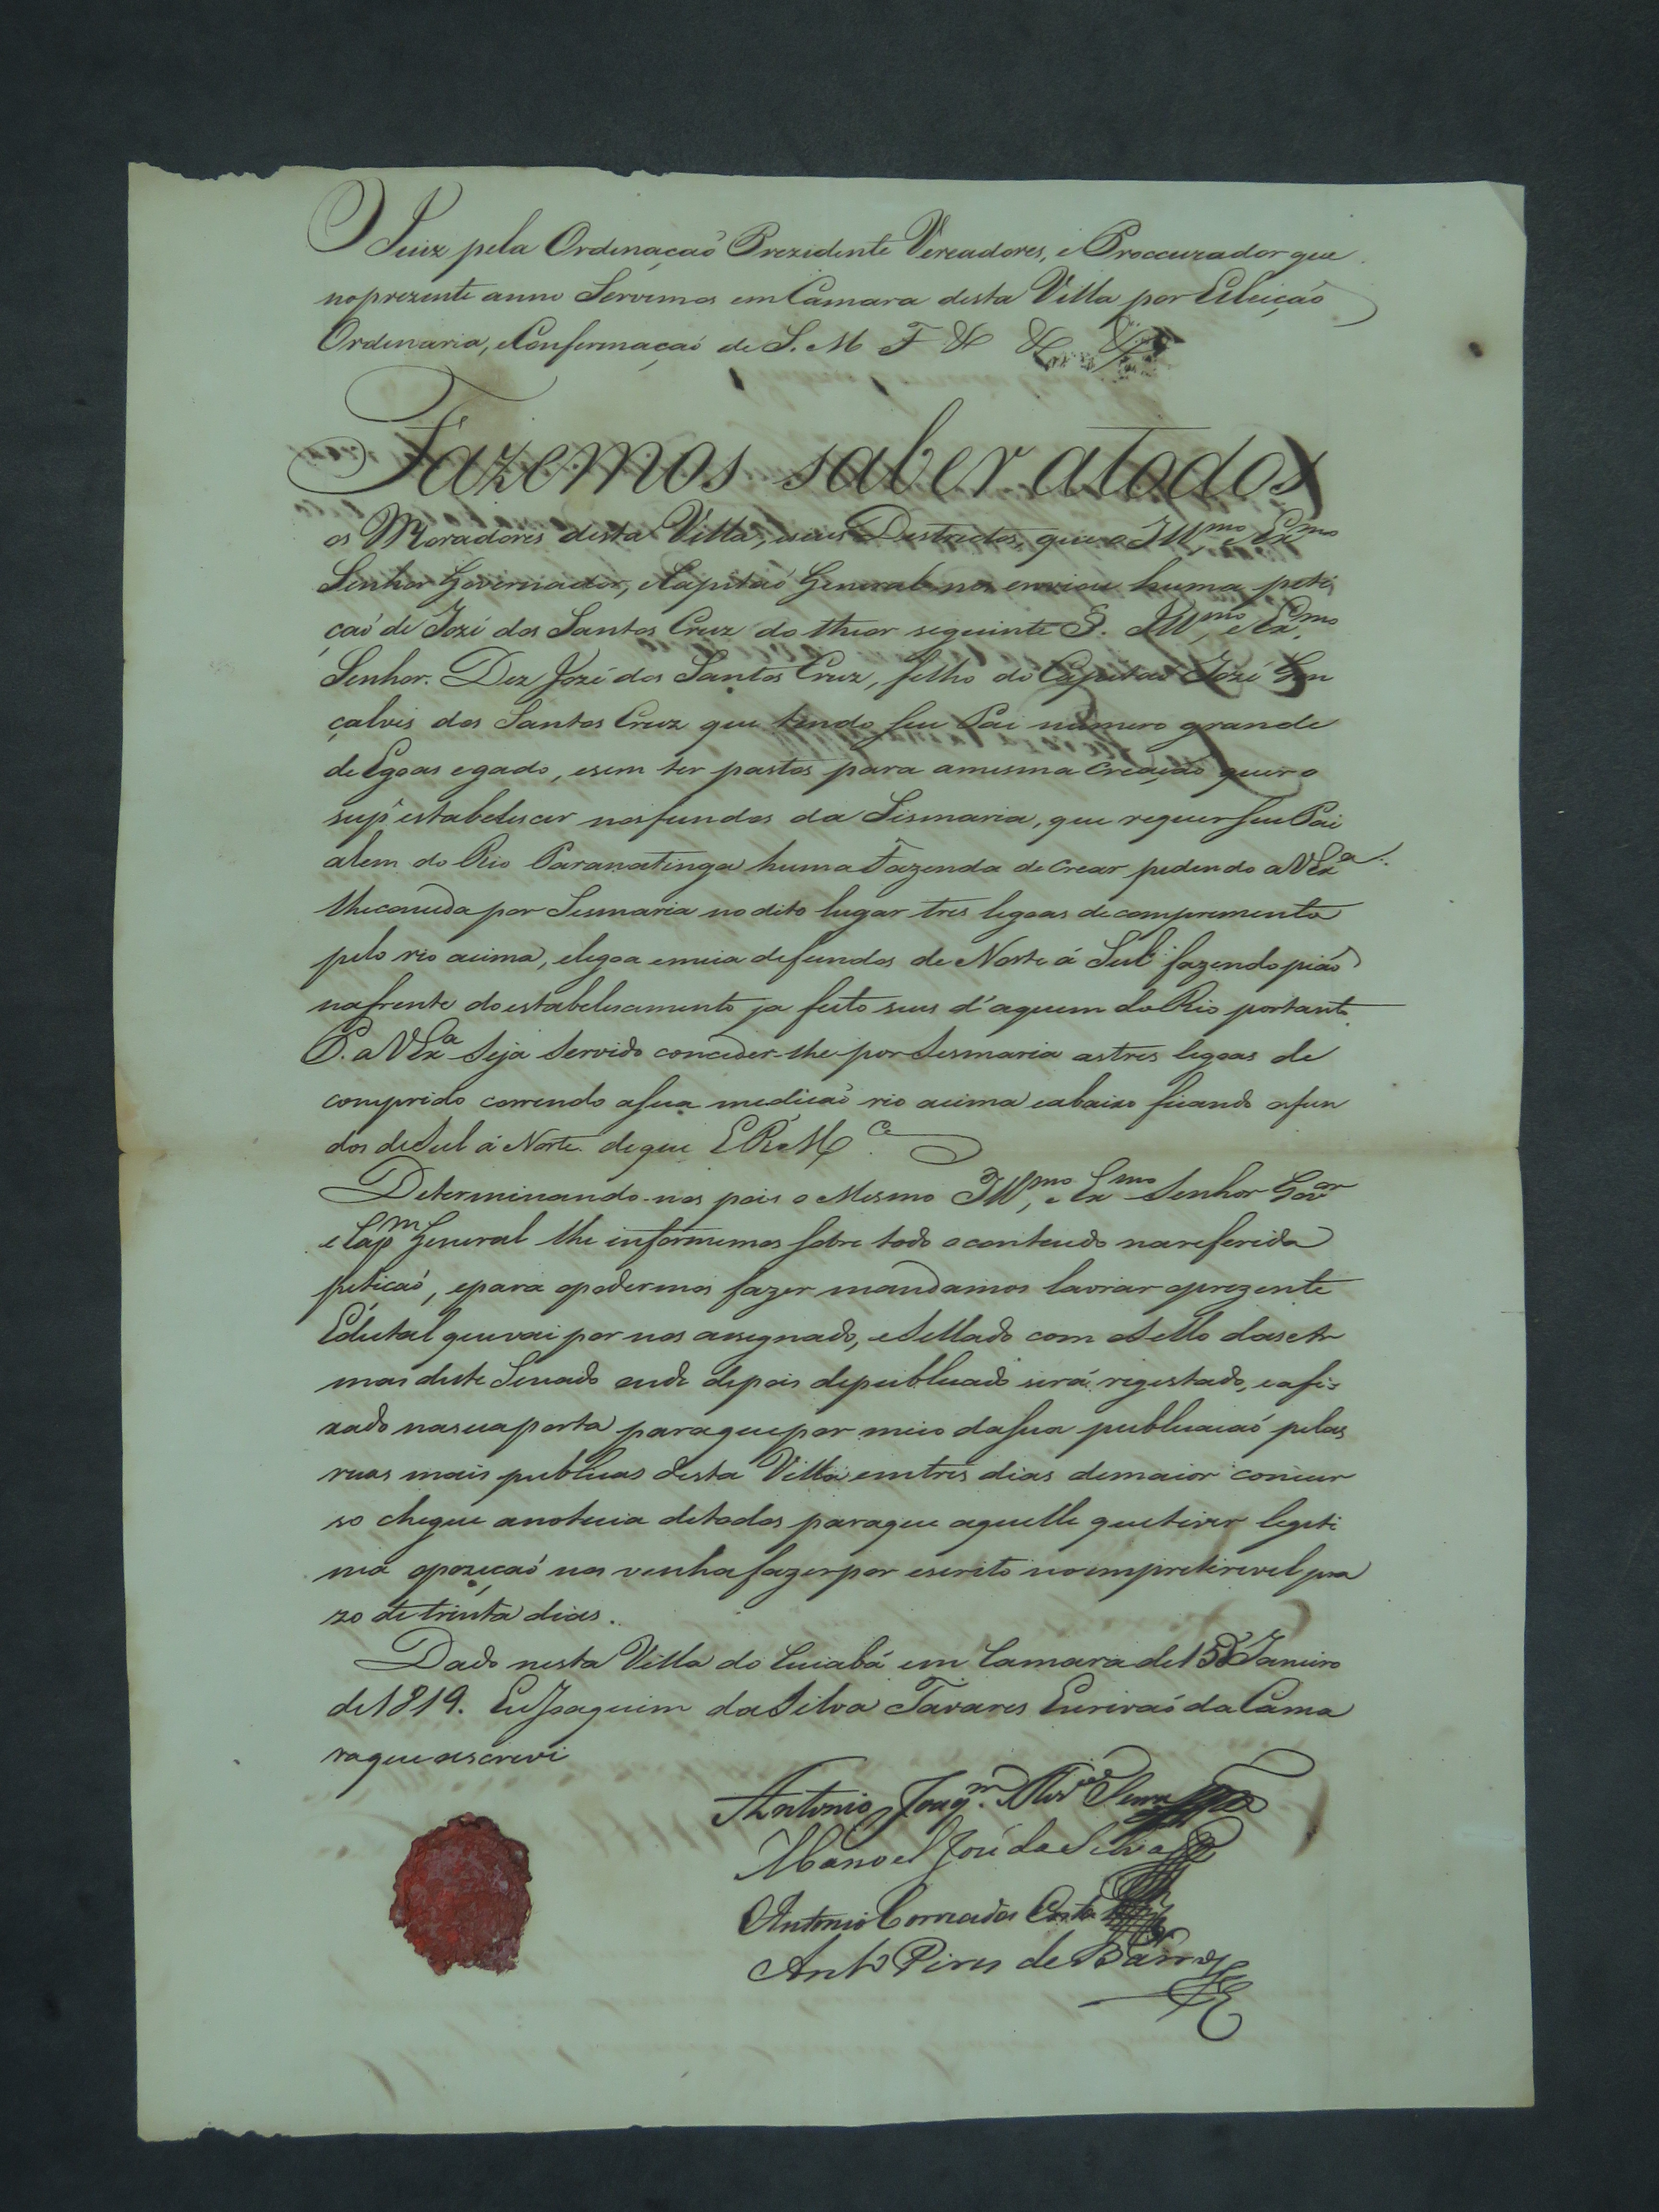 O Juiz pela Ordenaçaõ Prezidente Vereadores, e Proccurador que
no prezente anno Servimos em Camara desta Villa por Elleiçaõ
Ordenaria, e Confermaçaõ de S. M F & & &
Fazemos saber atodos
os Moradores desta Villa, eseus Destrictos, que o Ill.mo e Ex.mo
Senhor Governador, e Capitaõ General nos enviou huma peti
çaõ de Jozé dos Santos Cruz do theor seguinte §. Ill.mo e Ex.mo
Senhor. Dez Jozé dos Santos Cruz, filho do Capitaõ Jozé Gon
çalves dos Santos Cruz que tendo seu Pai numero grande
de Egoas egado, esem ter pastos para amesma Creaçaõ quer o
sup.e estabeleser nosfundos da Sismaria, que requer seu Pai
alem do Rio Paranatinga huma Fazenda de crear pedendo aVEx.a
lheconceda por Sesmaria nodito lugar tres legoas decompremento
pelo rio acima, elegoa emeia defundos de Norte á Sul fazendo piaõ
nafrente doestabelesamento ja feito seus d'aquem do Rio portanto
P. aVEx.a Seja Servido conceder-lhe por Sesmaria astres legoas de
comprido correndo asua mediçaõ rio acima eabaixo ficando osfun
dos deSul á Norte. deque E R M.ce
Determinando-nos pois o Mesmo Ill.mo, e Ex.mo Senhor Gov.or
e Cap.m General lhe informemos sobre todo oconteudo nareferida
petiçaõ, epara opodermos fazer mandamos lavrar oprezente
Edital quevai por nos assegnado, eSellado com oSello dasAr
mas deste Senado onde depois depublicado será regestado, eafi=
xado nasuaporta paraquepor meio dasua publicaçaõ pelas
ruas mais publicas desta Villa emtres dias demaior concur
so chegue anoticia detodos paraque aquelle quetiver legeti
ma opozeçaõ nos venhafazerpor escrito noimpreterivel pra
zo de trinta dias.
Dado nesta Villa do Cuiabá em Camara de 15 de Janeiro
de 1819. EuJoaquim daSilva Tavares Escrivaõ daCama
raque escrevi
Antonio Joaq.m
Manoel José da Silva
Antonio Correa da Costa
Ant.o Pires de Barros